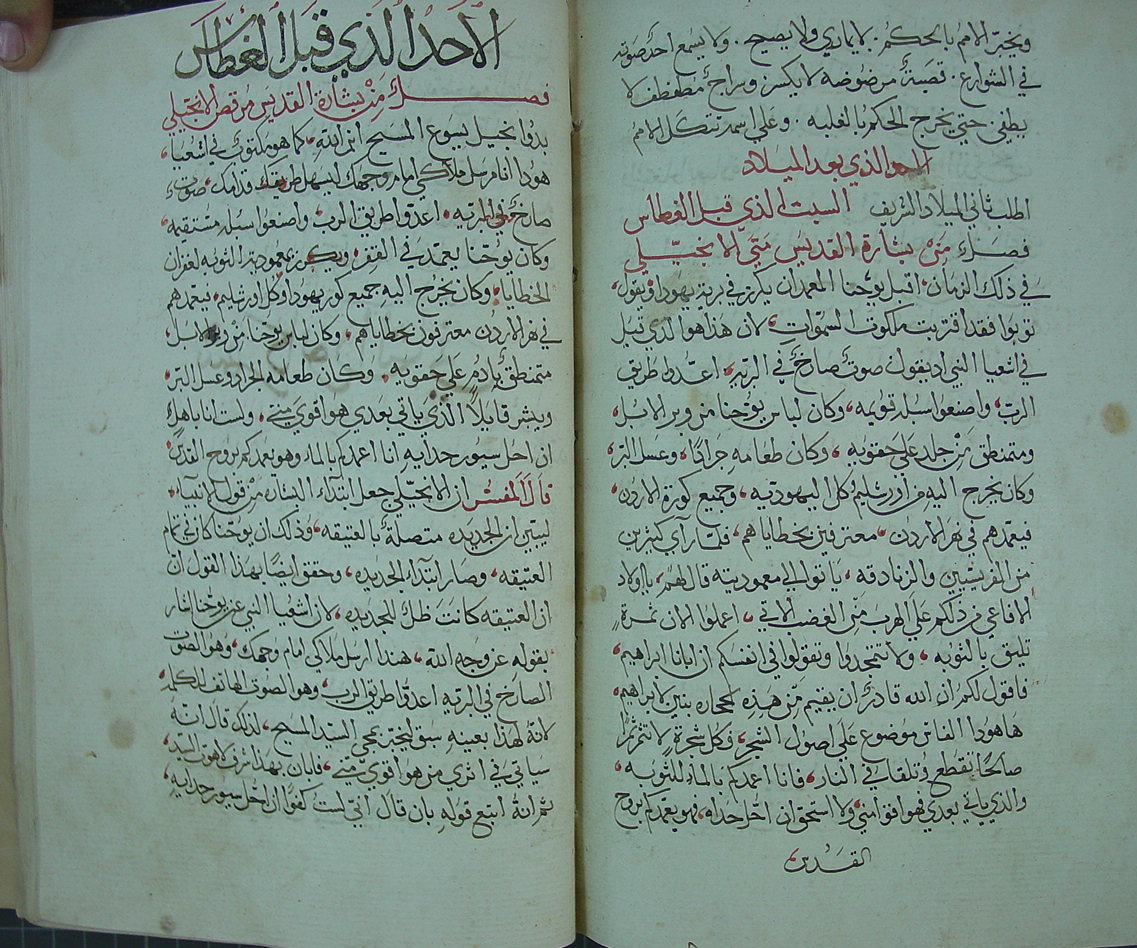 ويخبر الامم بالحكم. لا يماري ولا يصيح. ولا يسمع احد صوته
في الشوارع. قصبة مرضوضة لا يكسر وسراج مطفطف لا
يطفي حتي يخرج الحكم بالغلبه. وعلي اسمه تتكل الامم
الذي بعد الميلاد
اطلب ثاني الميلاد الشريف السبت الذي قبل الغطاس
فصل من بشارة القديس متي الانجيلي
في ذلك الزمان، اقبل يوحنا المعمدان يكرز في برية يهودا ويقول،
توبوا فقد اقتربت ملكوت السموات، لان هذا هو الذي قيل
في اشعيا النبي اذ يقول صوت صارخ في البريه، اعدوا طريق
الرب، واصنعوا سبله قويمه، وكان لباس يوحنا من وبر الابل
ومتمنطق من جلد علي حقويه، وكان طعامه جرادا، وعسل البر،
وكان يخرج اليه من اورشليم كل اليهوديه، وجميع كورة الاردن،
فيعمدهم في نهر الاردن، معترفين بخطاياهم، فلما راي كثيرين
من الفريسيين والزنادقه، ياتوا الي معموديته قال لهم، يا اولاد
الافاعي من دلكم علي الهرب من الغضب الاتي، اعملوا الان ثمرة
تليق بالتوبه، ولا تتجدوا وتقولوا في انفسكم ان ابانا ابراهيم،
فاقول لكم ان الله قادر ان يقيم من هذه الحجاره بنين لابراهيم،
ها هوذا الفاس موضوع علي اصول الشجر، وكل شجرة لا تثمر ثمرا
صالحا تقطع وتلقا في النار، فانا اعمدكم بالماء للتوبه،
والذي ياتي بعدي فهو اقوا مني، ولا استحق ان احل حداه، فهو يعمدكم بروح
القدس،
الاحد الذي قبل الغطاس
فصل من بشارة القديس مرقص الانجيلي
بدوا انجيل يسوع المسيح ابن الله، كما هو مكتوب في اشعيا،
هوذا انا مرسل ملاكي امام وجهك ليسهل طريقك قدامك، صوت
صارخ في البريه، اعدوا طريق الرب، واصنعوا سبله مستقيمه،
وكان يوحنا يعمد في القفر، ويكرز بمعمودية التوبه لغفران
الخطايا، وكان يخرج اليه جميع كور يهودا وكل اورشليم، فيعمدهم
في نهر الاردن معترفون بخطاياهم، وكان لباس يوحنا من وبر الابل،
متمنطق بادم علي حقويه، وكان طعامه الجراد وعسل البر،
وبشر قايلا الذي ياتي بعدي هو اقوي مني، ولست انا باهل
ان احل سيور حدايه انا اعمدكم بالماء وهو يعمدكم بروح القدس،
قال المفسر ان الانجيلي جعل ابتداء البشاره من قول الانبياء،
ليبين ان الجديده متصلة بالعتيقه، وذلك ان يوحنا كان تمام
العتيقه، وصار ابتداء الجديده، وحقق ايضا بهذا القول ان
ان العتيقه كانت ظل للجديده، لان اشعيا النبي عن يوحنا اشار
بقوله عن وجه الله، هنذا ارسل ملاكي امام وجهك، وهو الصوت
الصارخ في البريه اعدوا طريق الرب، وهو الصوت الهاتف للكلمه
لانه لهذا بعينه سبق ليخبر بمجي السيد المسيح، لذلك قال انه
سياتي في اثري من هو اقوي مني، فابان بهذا شرف لاهوت السيد،
ثم انه اتبع قوله بان قال اني لست كفوا ان احل سيور حدايه،